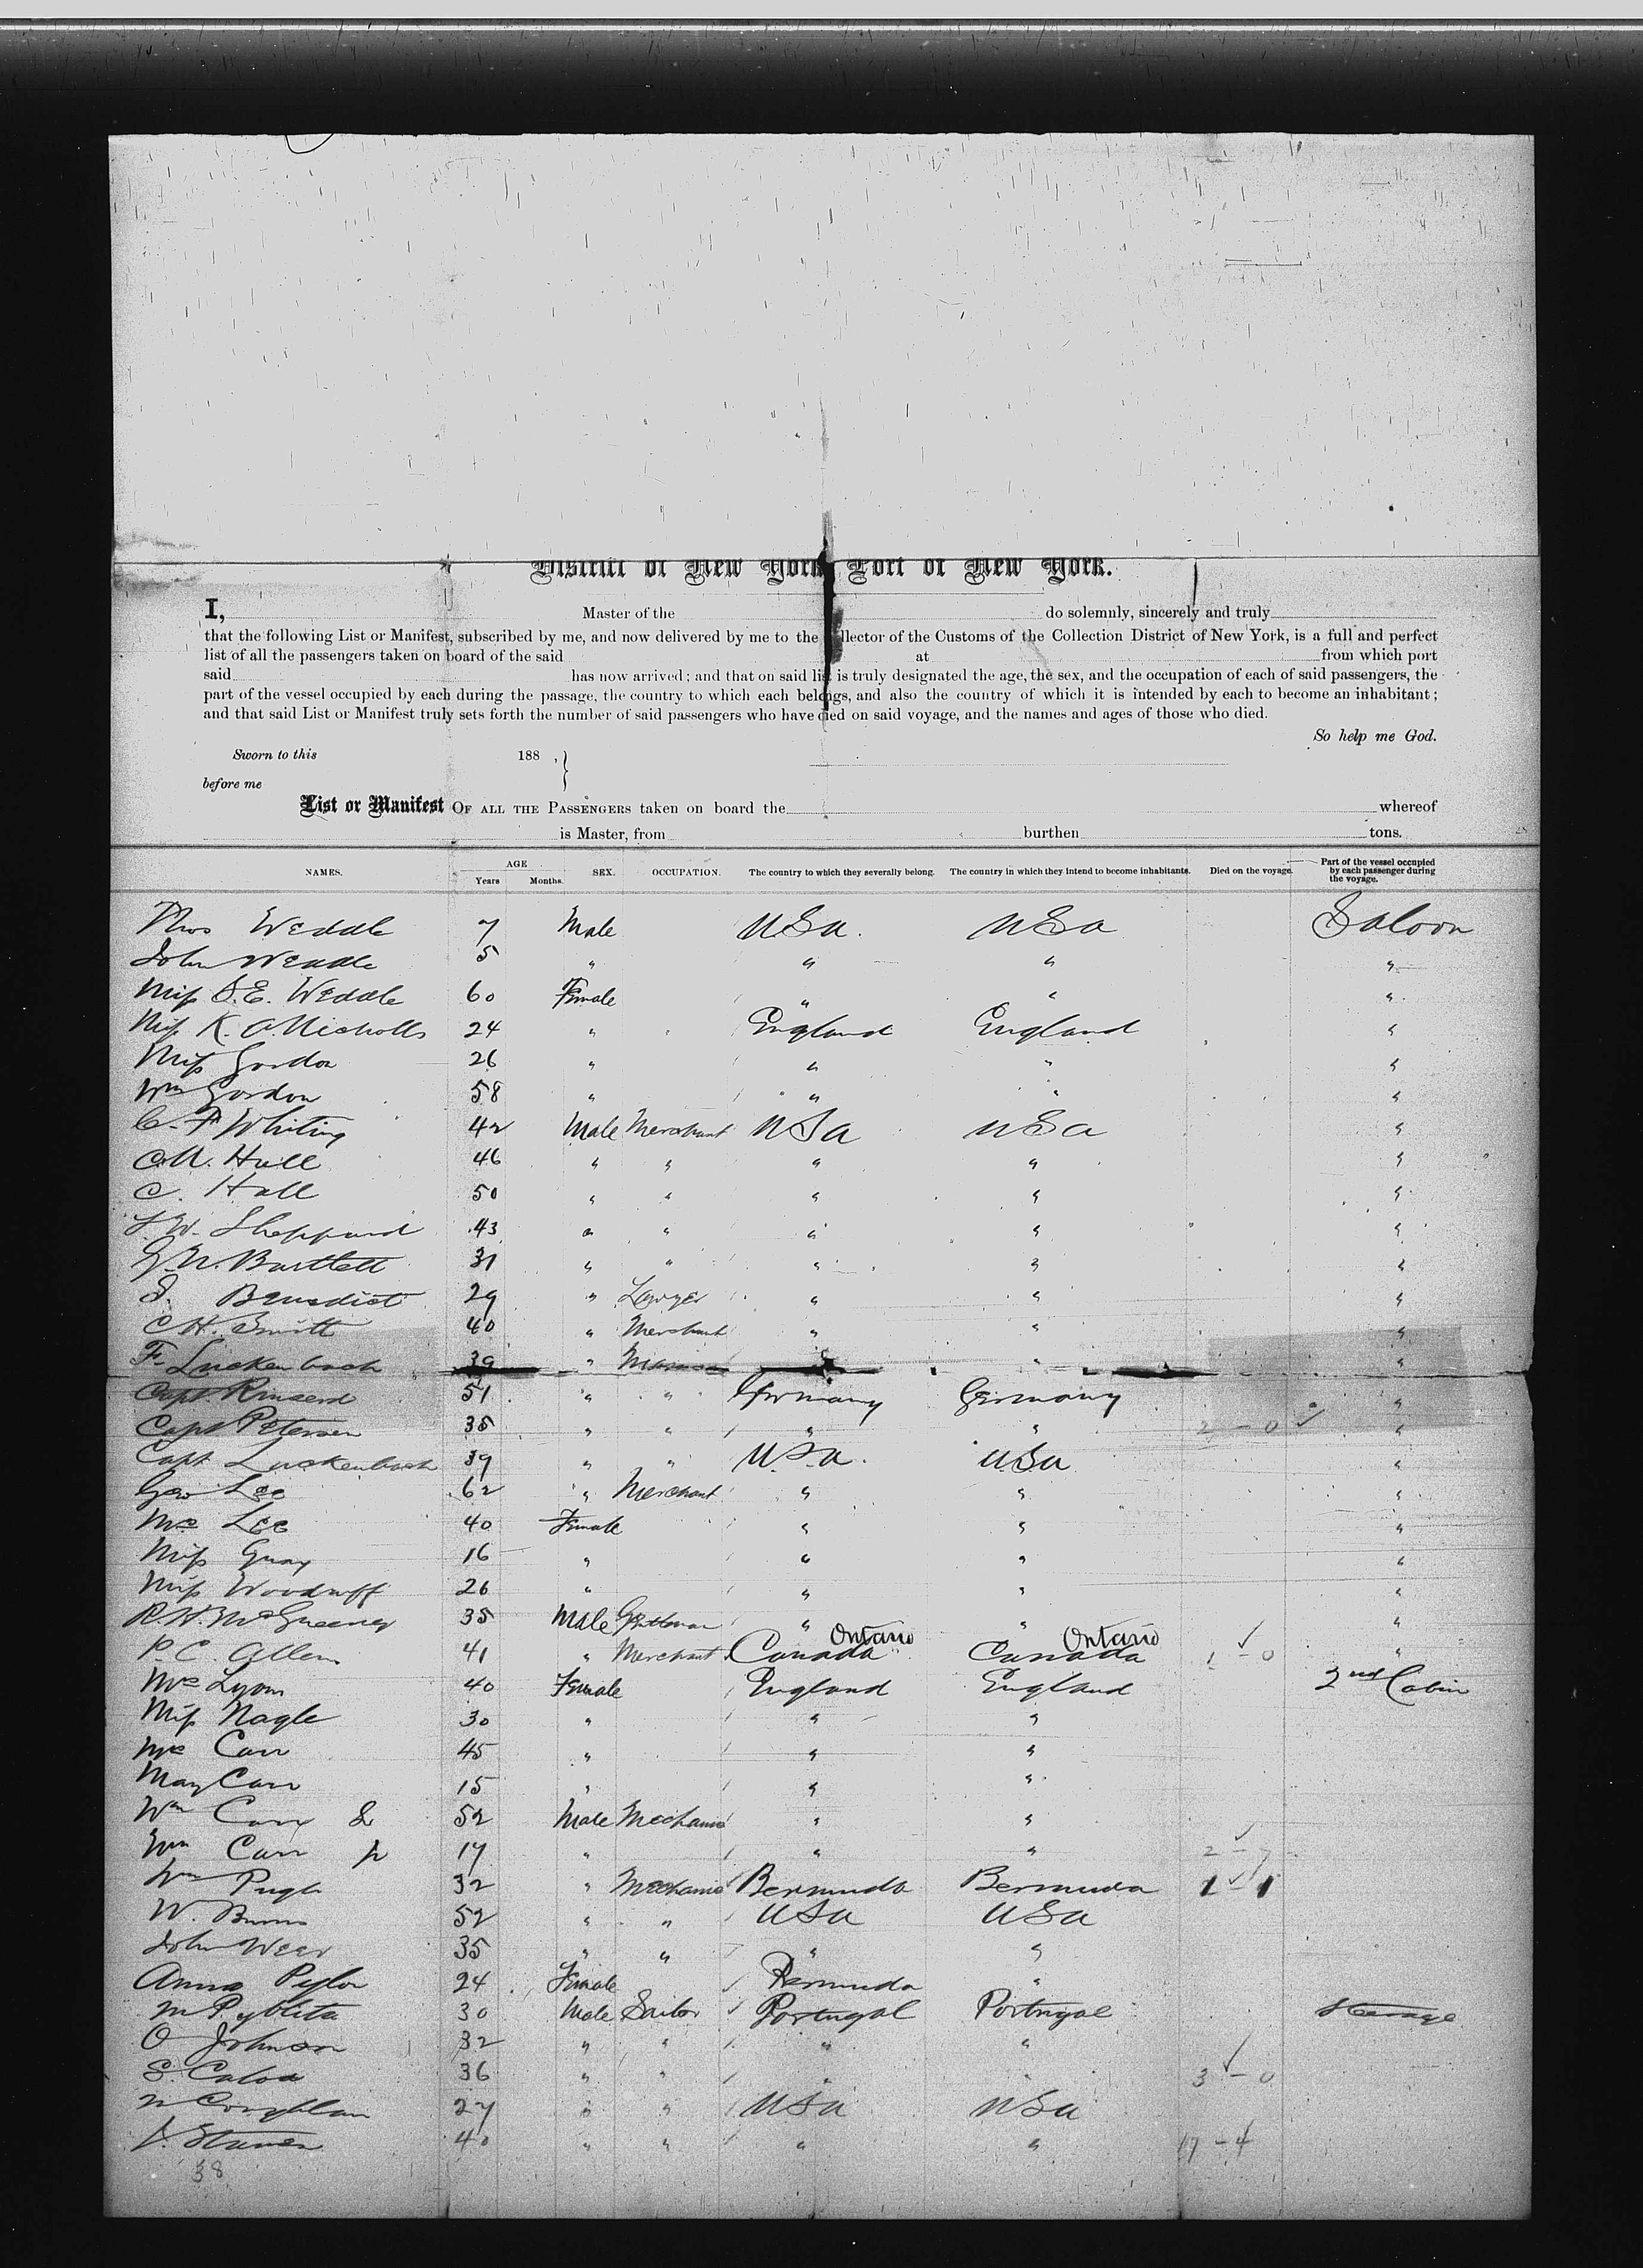 District of New York, Port of New York.
I, Master of the do solemnly, sincerely and truly
that the following List or Manifest, subscribed by me, and now delivered by me to the Collector of the Customs of the Collection District of New York, is a full and perfect
list of all the passengers taken on board of the said at from which port
said has now arrived; and that on said list is truly designated the age, the sex, and the occupation of each of said passengers, the
part of the vessel occupied by each during the passage, the country to which each belongs, and also the country of which it is intended by each to become an inhabitant;
and that said List or Manifest truly sets forth the number of said passengers who have died on said voyage, and the names and ages of those who died.
So help me God.
Sworn to this 188 ,
before me
List or Manifest OF ALL THE PASSENGERS taken on board the whereof
is Master, from burthen tons.
NAMES. AGE Years Months. SEX. OCCUPATION. The country to which they severally belong. The country in which they intend to become inhabitants. Died on the voyage. Part of the vessel occupied by each passenger during the voyage.
Thos Weddle 7 Male USa. USa Saloon
John Weddle 5 " " " "
Miss S.E. Weddle 60 Female " " "
Miss K. A. Nicholls 24 " England England "
Miss Gordon 26 " " " "
Gordon 58 " " " "
C. F. Whiting 42 Male Merchant USa USa "
Hall 46 " " " " "
C. Hall 50 " " " " "
Sheppard 43 " " " " "
Bartlett 31 " " " " "
S. Benedict 29 " Lawyer " " "
C H. Smith 40 " Merchant " " "
F. Luckenbach 39 " " " "
Capt. 51 " " Germany Germany "
Capt Petersen 35 " " " " 2 - 0 "
Capt Luckenbach 39 " " U.S.a. USa "
Geo Lee 62 " Merchant " " "
Mrs Lee 40 Female " " "
Miss Gray 16 " " " "
Miss Woodruff 26 " " " "
R.H. 35 Male Gentleman " " "
P. C. Allen 41 " Merchant Canada Ontario Canada Ontario 1 - 0 "
Mrs Lyon 40 Female England England 2nd Cabin
Miss Nagle 30 " " "
Mrs Carr 45 " " "
May Carr 15 " " "
Wm Carr 52 Male Mechanic " "
Wm Carr jr 17 " " "
Wm Pugh 32 " Mechanic Bermuda Bermuda 1 - 1
W. Burns 52 " " USa USa
John Weer 35 " " " "
Anna 24 Female Bermuda "
30 Male Sailor Portugal Portugal Steerage
O Johnson 32 " " " "
S. 36 " " " 3 - 0
Coughlan 27 " " USa USa
40 " " " " 17 - 4
38